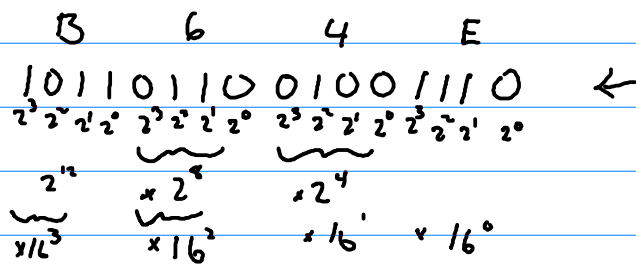 B 6 4 E
1011 0110 0100 1110 ←
2³ 2² 2¹ 2⁰ 2³ 2² 2¹ 2⁰ 2³ 2² 2¹ 2⁰ 2³ 2² 2¹ 2⁰
2¹² × 2⁸ × 2⁴
×16³ × 16² × 16¹ × 16⁰